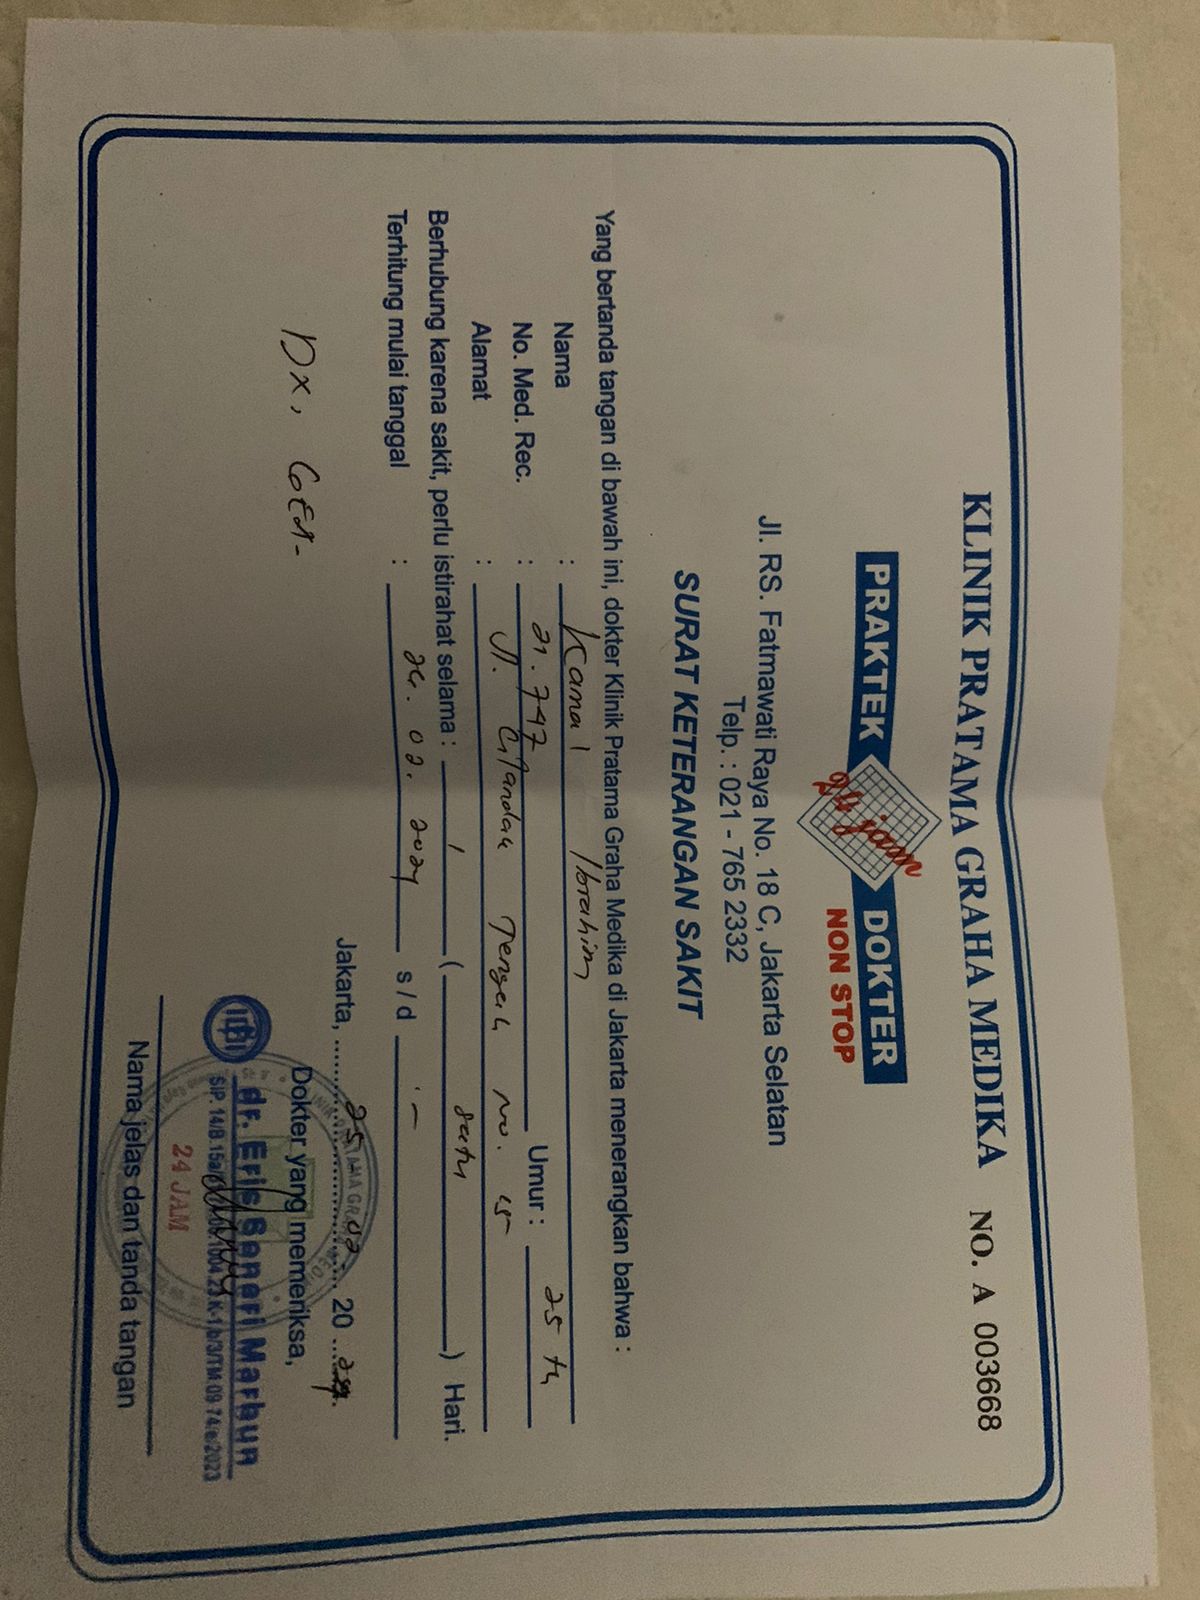 KLINIK PRATAMA GRAHA MEDIKA NO. A 003668
PRAKTEK 24 jam DOKTER
NON STOP
Jl. RS. Fatmawati Raya No. 18 C, Jakarta Selatan
Telp. : 021 - 765 2332
SURAT KETERANGAN SAKIT
Yang bertanda tangan di bawah ini, dokter Klinik Pratama Graha Medika di Jakarta menerangkan bahwa :
Nama : Kamal Ibrahim
No. Med. Rec. : 21.747 Umur : 25 th
Alamat : Jl. Cilandak Tengah no. 15
Berhubung karena sakit, perlu istirahat selama : 1 ( satu ) Hari.
Terhitung mulai tanggal : 24. 02. 2024 s / d -
Jakarta, 25 02 20 24.
DX, GEA-
Dokter yang memeriksa,
dr. Eris Senari Marbun
24 JAM
Nama jelas dan tanda tangan